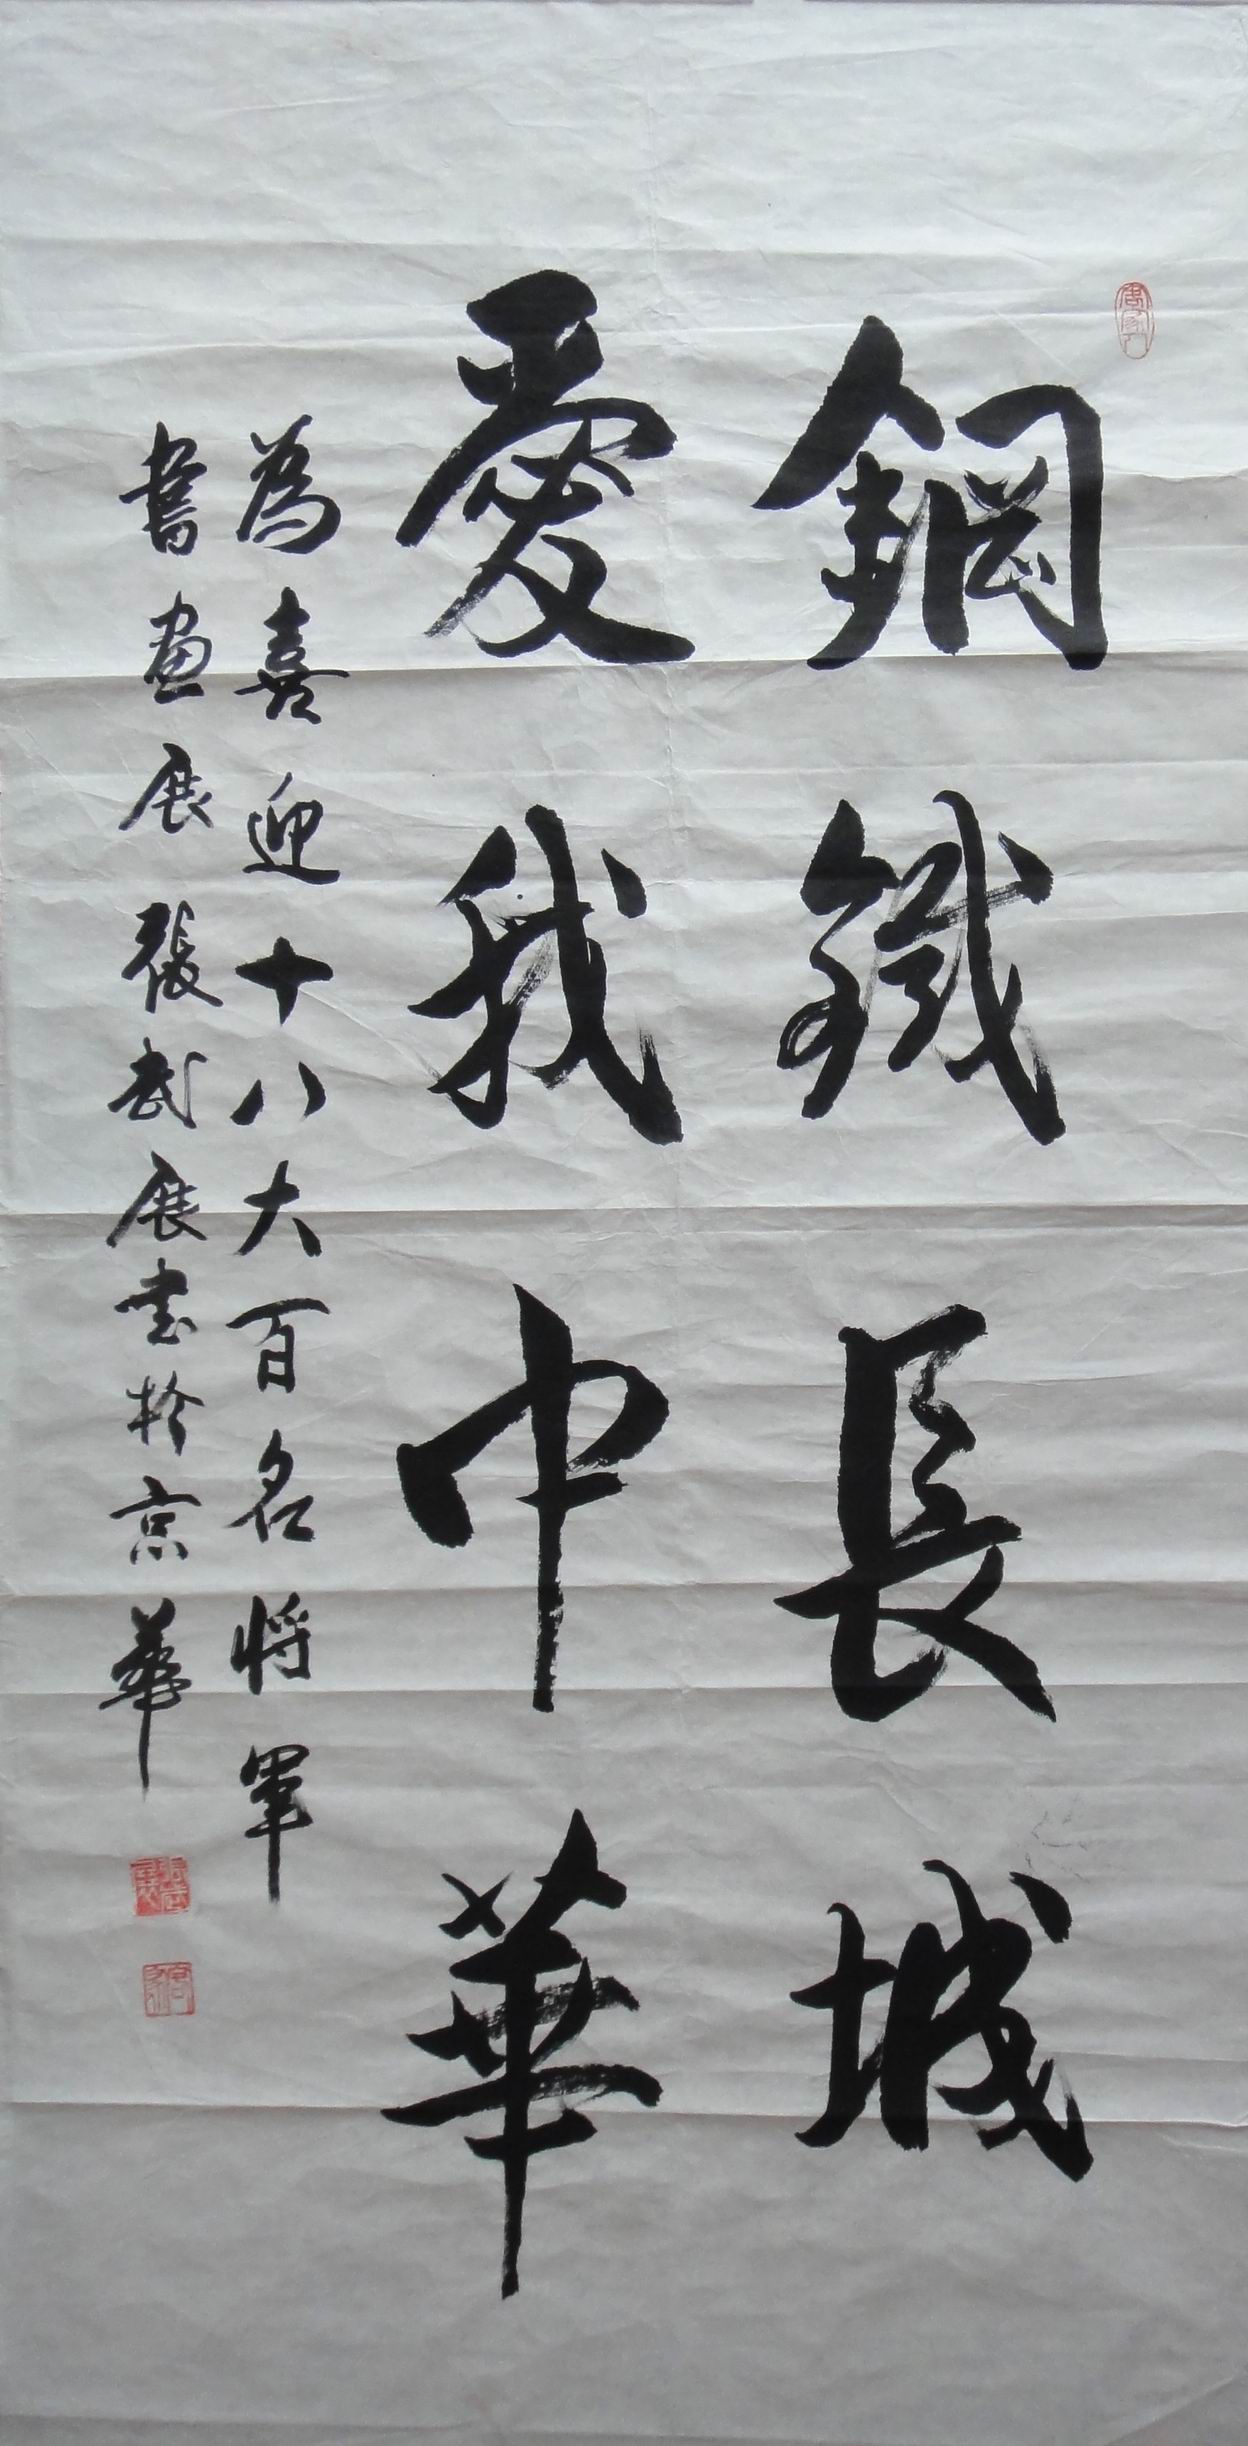 鋼鐵長城
愛我中華
為喜迎十八大百名将軍
書畫展張武展書於京華